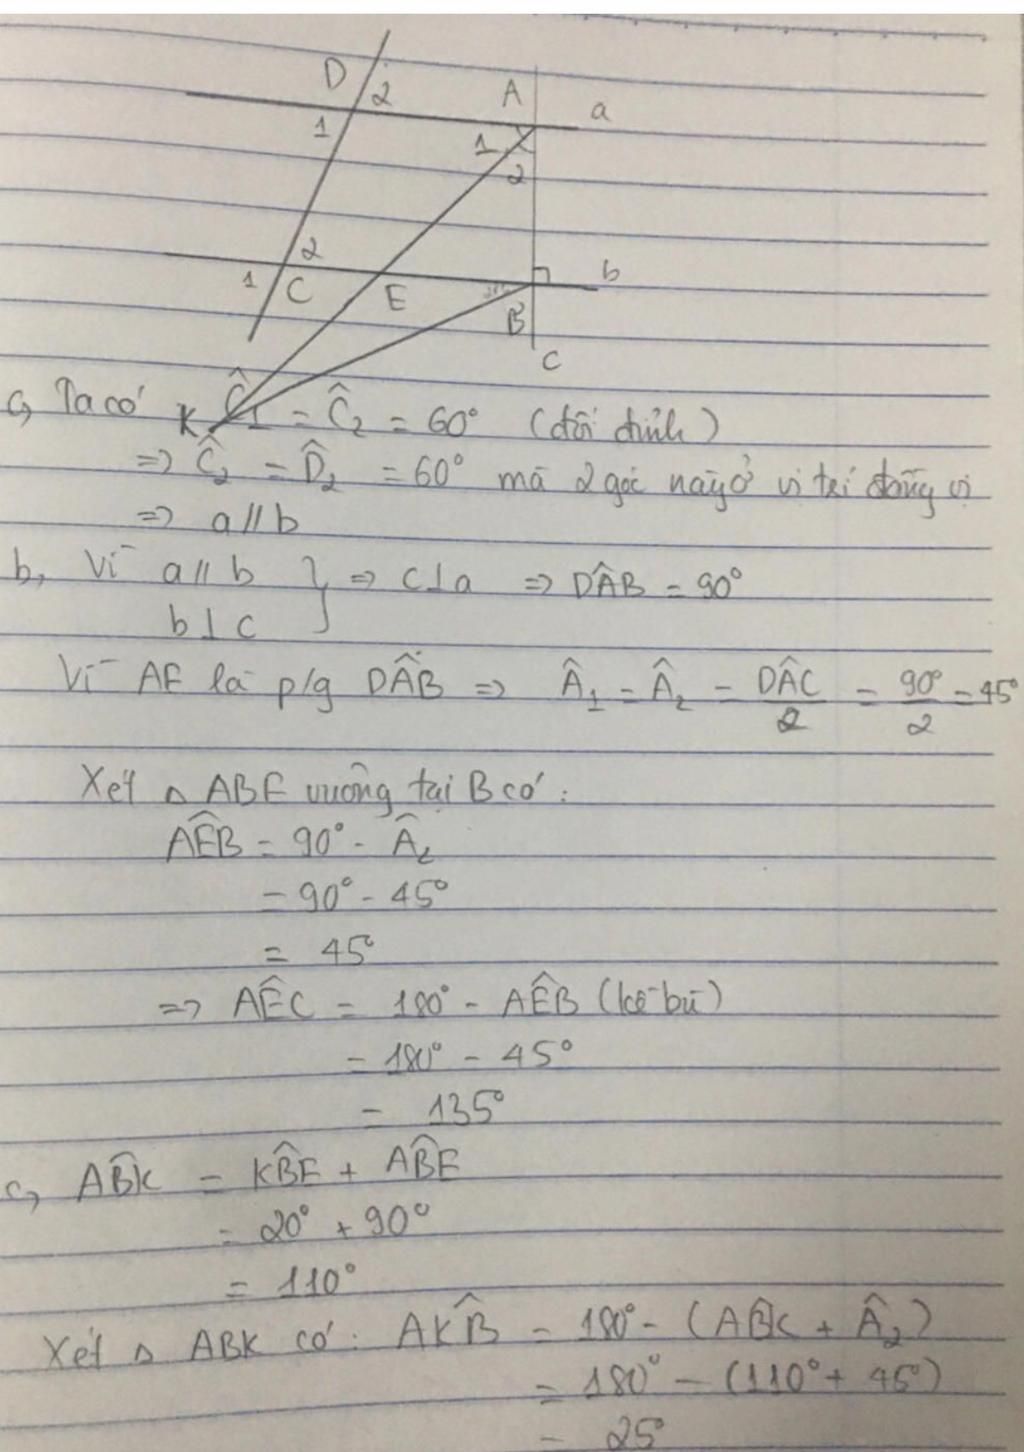 D 2 A a
1 1 2
2 b
1 C E B
C
a, Ta có K Ĉ₁ = Ĉ₂ = 60° (đối đỉnh)
=> Ĉ₂ = D̂₂ = 60° mà 2 góc này ở vị trí đồng vị
=> a // b
b, Vì a // b } => c⊥a => DÂB = 90°
b⊥c
Vì AE là p/g DÂB => Â₁ = Â₂ = DÂC/2 = 90°/2 = 45°
Xét △ ABE vuông tại B có:
AÊB = 90° - Â₂
= 90° - 45°
= 45°
=> AÊC = 180° - AÊB (kề bù)
= 180° - 45°
= 135°
c, AB̂K = KB̂E + AB̂E
= 20° + 90°
= 110°
Xét △ ABK có: AK̂B = 180° - (AB̂K + Â₂)
= 180° - (110° + 45°)
= 25°